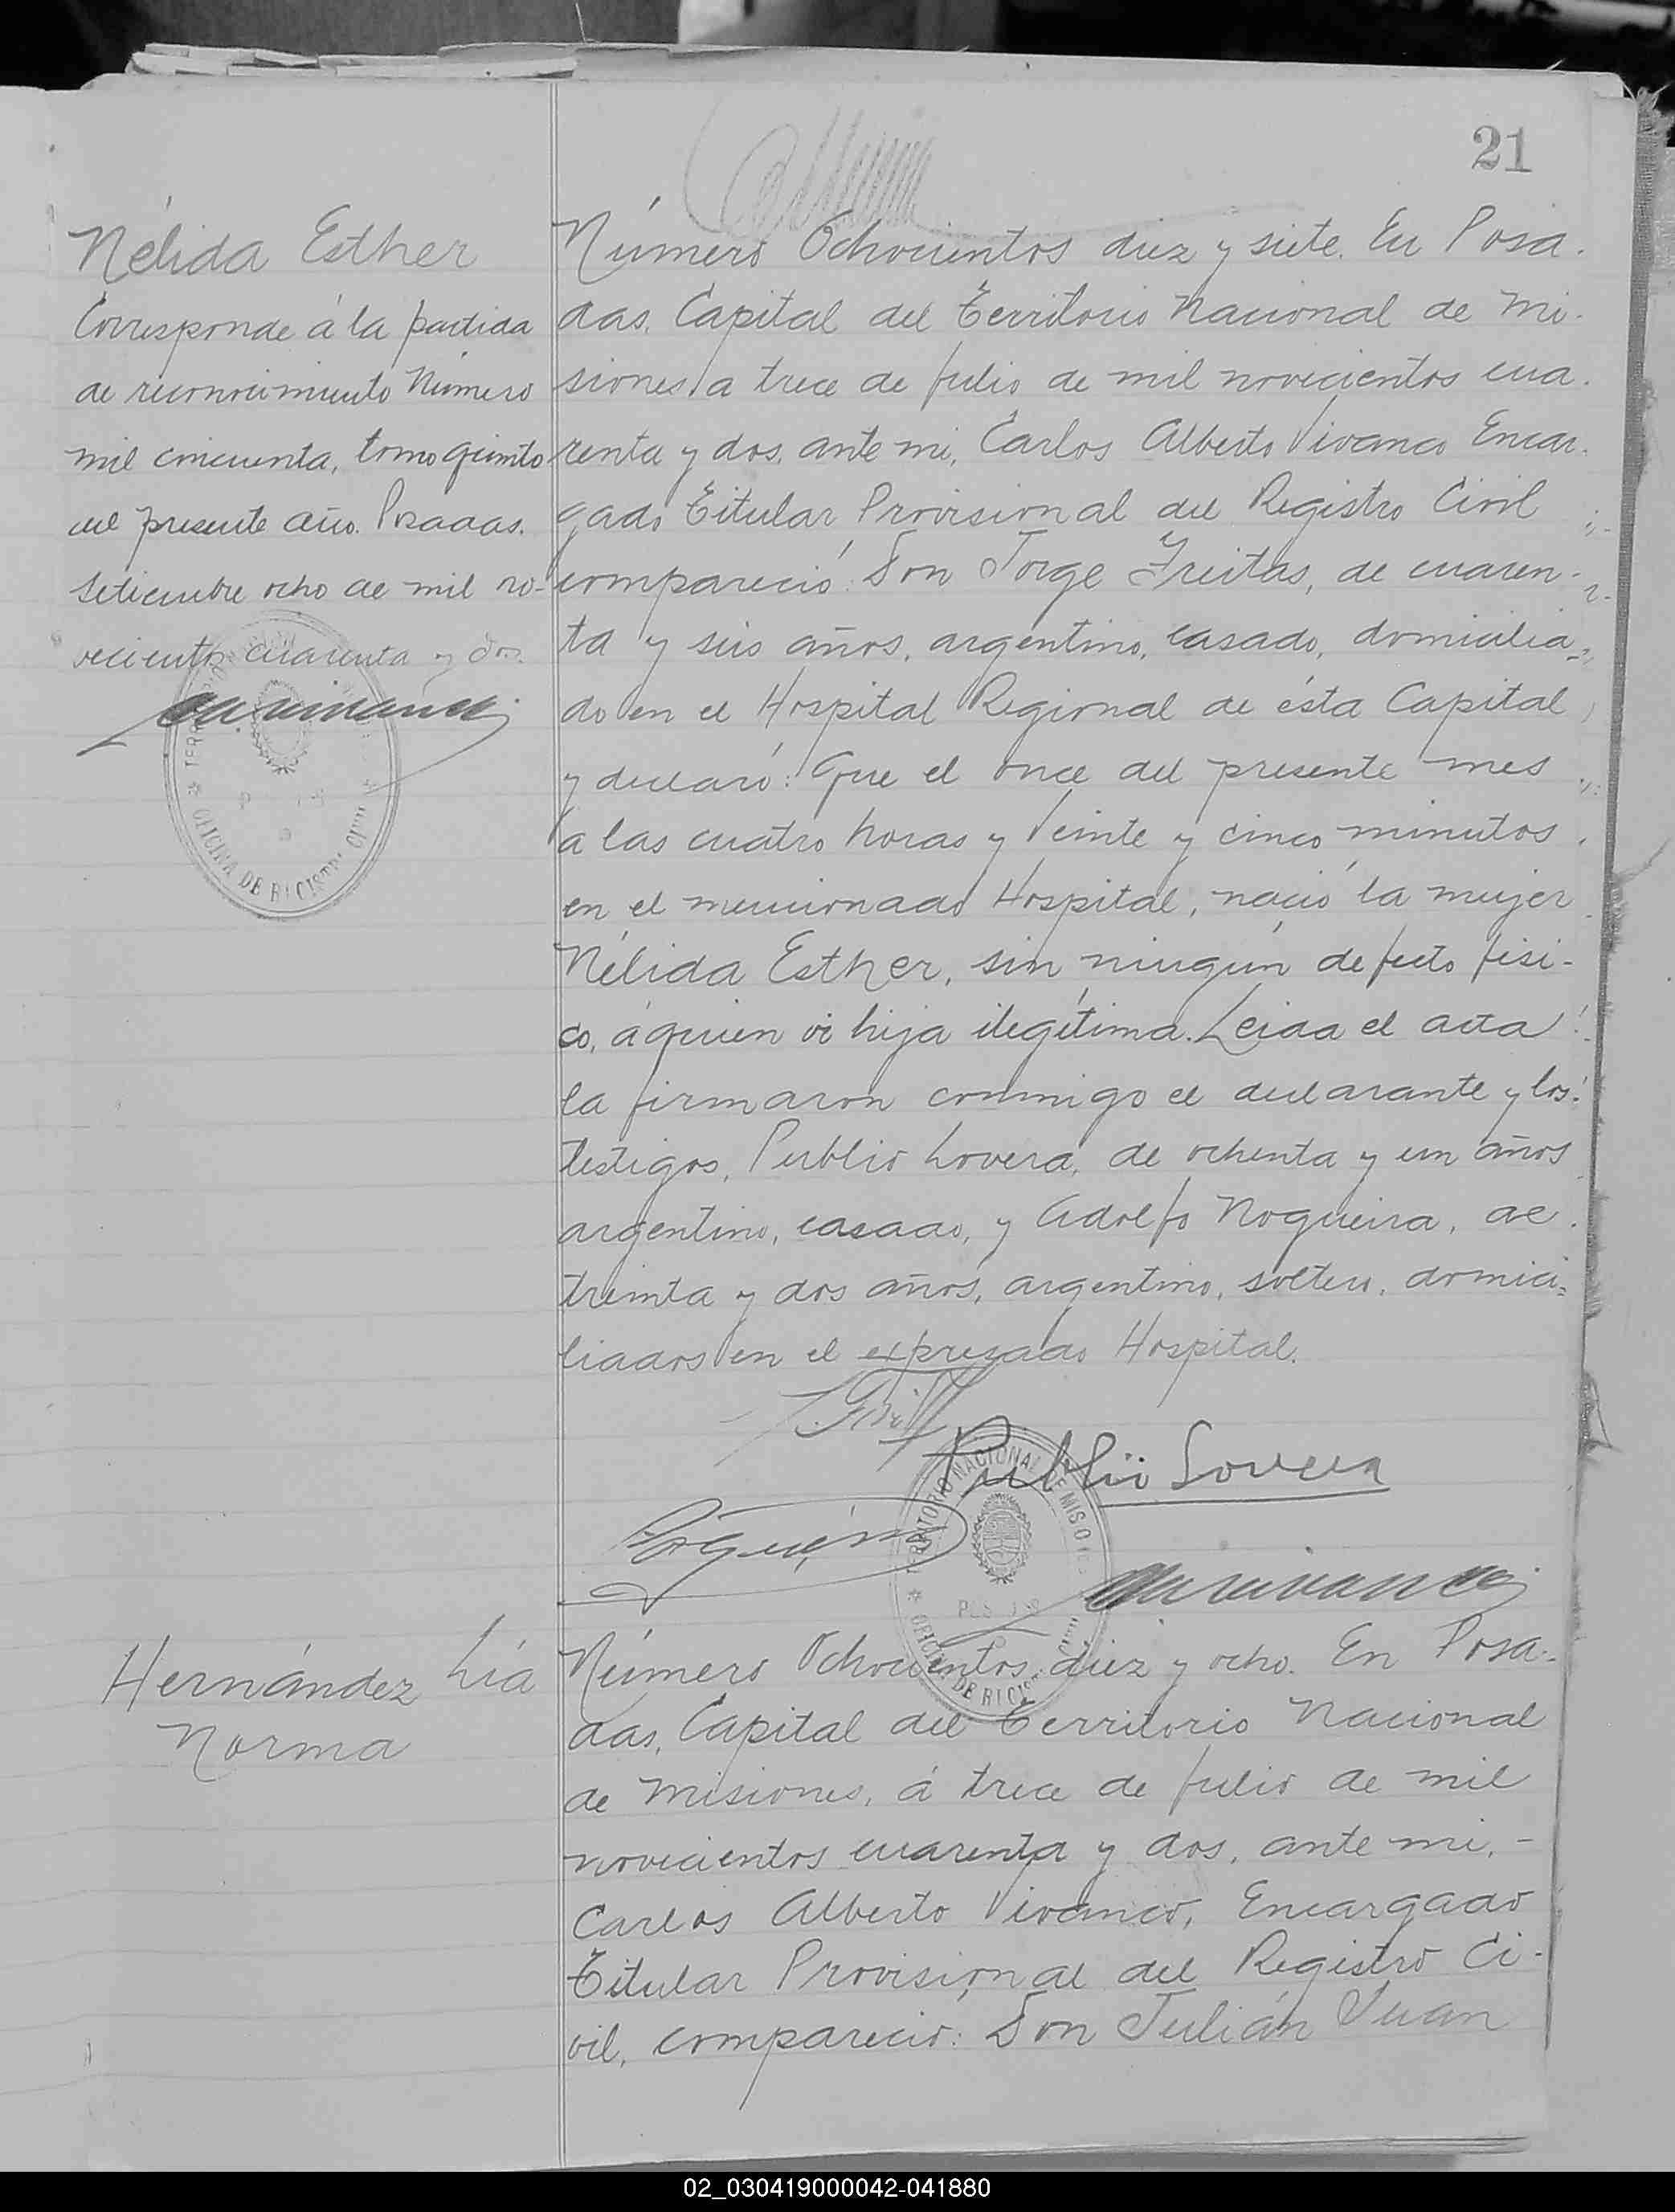 21
Nélida Esther
Corresponde á la partida
de reconocimiento Número
mil cincuenta, tomo quinto
del presente año. Posadas.
Setiembre ocho de mil no-
vecientos cuarenta y dos.
OFICINA DE REGISTRO CIVIL
Número Ochocientos diez y siete. En Posa-
das, Capital del Territorio Nacional de Mi-
siones, a trece de Julio de mil novecientos cua-
renta y dos, ante mi, Carlos Alberto Vivanco Encar-
gado Titular Provisional del Registro Civil
compareció: Don Jorge Freitas, de cuaren-
ta y seis años, argentino, casado, domicilia-
do en el Hospital Regional de ésta Capital
y declaró: Que el once del presente mes
a las cuatro horas y veinte y cinco minutos
en el mencionado Hospital, nació la mujer
Nélida Esther, sin ningún defecto fisi-
co, á quien vi hija ilegítima. Leida el acta
la firmaron conmigo el declarante y los
testigos, Publio Lovera, de ochenta y un años
argentino, casado, y Adolfo Nogueira, de
treinta y dos años, argentino, soltero, domici-
liados en el expresado Hospital.
Publio Lovera
TERRITORIO NACIONAL DE MISIONES
OFICINA DE REGISTRO CIVIL
Hernández Lía
Norma
Número Ochocientos diez y ocho. En Posa-
das, Capital del Territorio Nacional
de Misiones, á trece de Julio de mil
novecientos cuarenta y dos, ante mi, -
Carlos Alberto Vivanco, Encargado
Titular Provisional del Registro Ci-
vil, compareció: Don Julián Juan
02_030419000042-041880